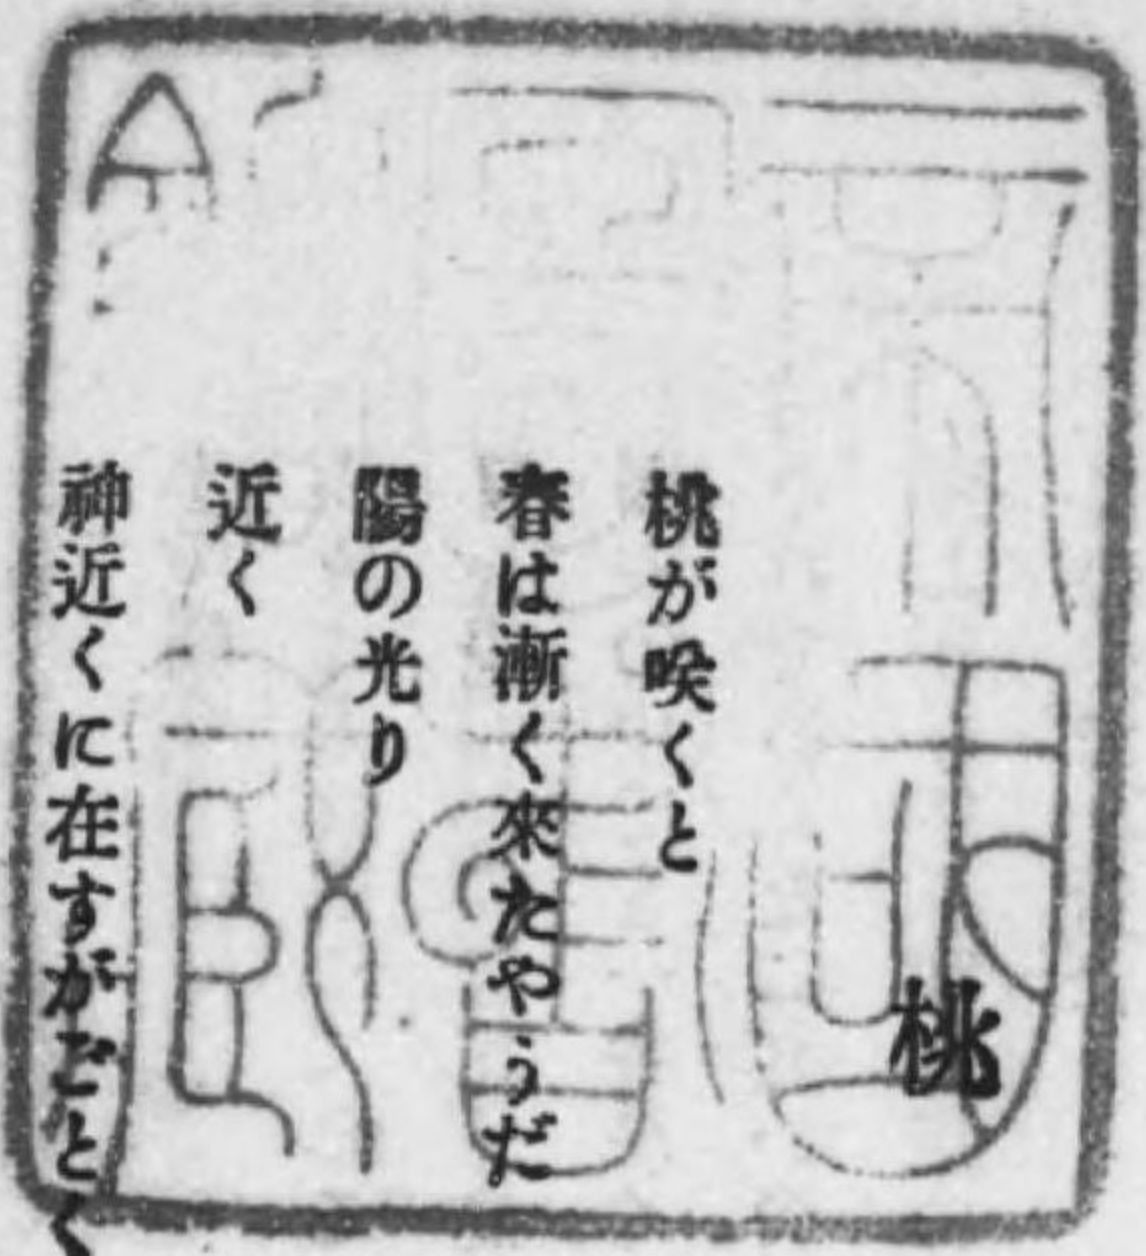 桃
桃が咲くと
春は漸く來たやうだ
陽の光り
近く
神近くに在すがごとく